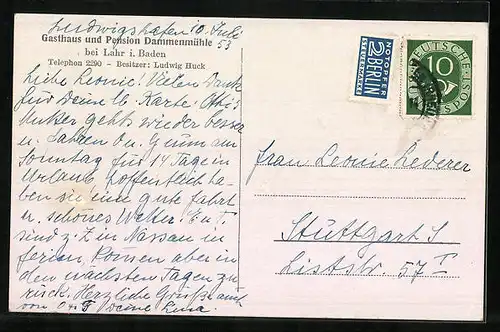 Ludwigshafen 10. Juli
53
Gasthaus und Pension Dammenmühle
bei Lahr i. Baden
Telephon 2290 – Besitzer: Ludwig Huck
Liebe Leonie. Vielen Dank
für Deine lb. Karte.
Mutter geht's wieder besser
u. fahren On. G
Sonntag für 14 Tage in
Urlaub hoffentlich ha-
ben sie eine gute Fahrt
u. schönes Wetter. E. u. T.
sind z. Z in Nassau in
Ferien, kommen aber in
den nächsten Tagen zu-
rück. Herzliche Grüße auch
von Deine Lina.
NOTOPFER
2 BERLIN
STEUERMARKE
DEUTSCHE
10
POST
Frau Leonie Lederer
Stuttgart S
Liststr. 57 I